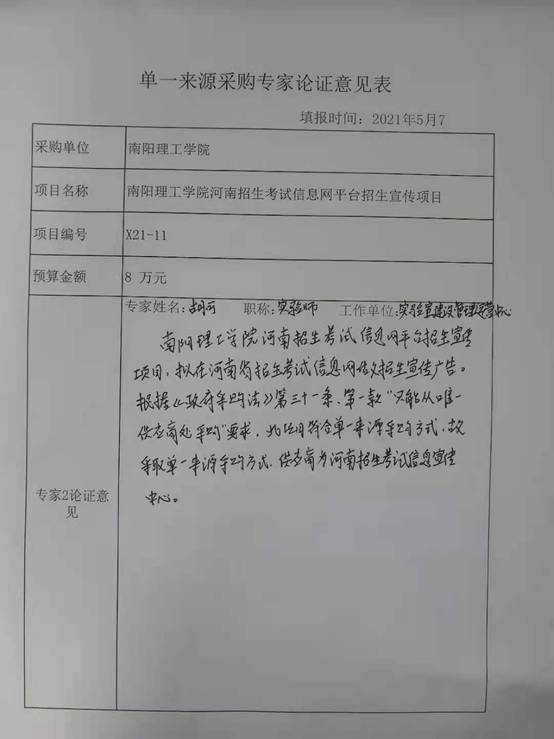 单一来源采购专家论证意见表
填报时间：2021年5月7
采购单位 南阳理工学院
项目名称 南阳理工学院河南招生考试信息网平台招生宣传项目
项目编号 X21-11
预算金额 8 万元
专家姓名：胡可 职称：实验师 工作单位：实验室建设管理运营中心
南阳理工学院河南招生考试信息网平台招生宣传
项目，拟在河南省招生考试信息网做招生宣传广告。
根据《政府采购法》第三十一条、第一款"只能从唯一
供应商处采购"要求，此项目符合单一来源采购方式，故
采取单一来源采购方式，供应商为河南招生考试信息宣传
中心。
专家2论证意
见